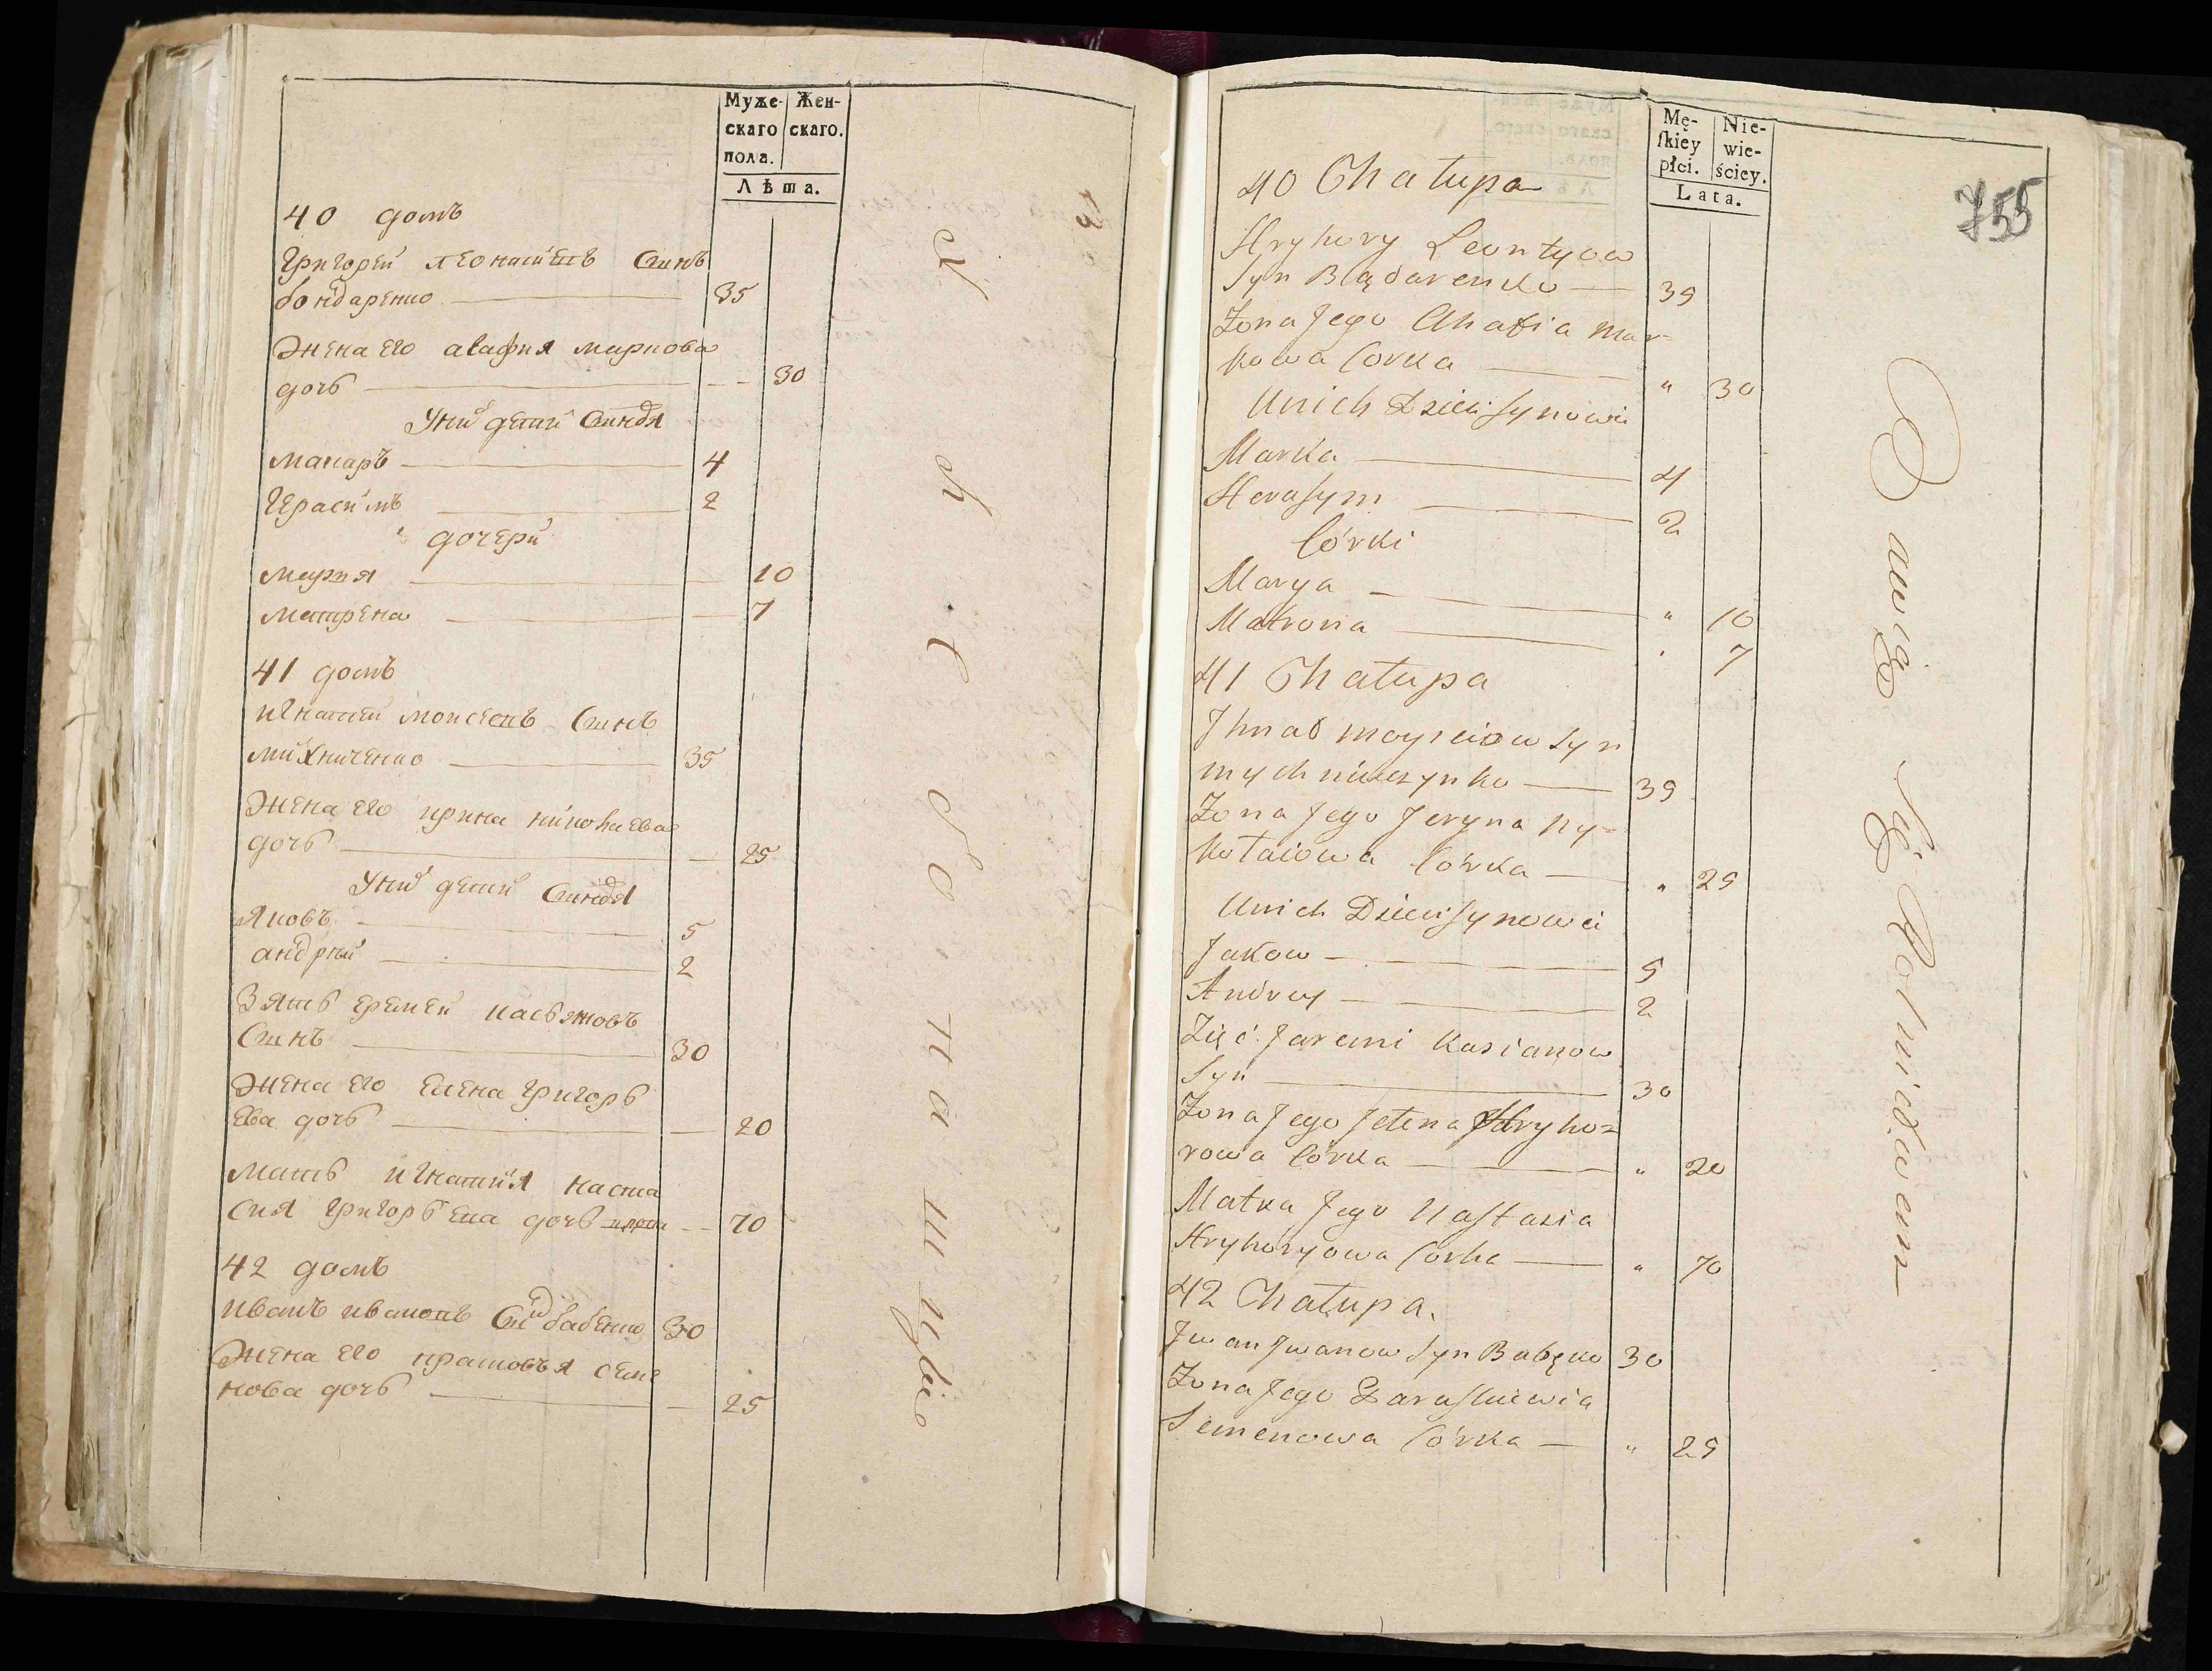 Муже-
скаго
пола.
Жен-
скаго.
Лѣта.
40 домъ
Григорей леонтиевъ Синъ
бондаренко 35
Жена его агафия маркова
дочь 30
У них детей Синовя
макаръ 4
Герасимъ 2
дочери
мария 10
матрена 7
41 домъ
игнатей моисеевъ Синъ
михниченко 35
Жена его ирина николаева
дочь 25
У них детей Синовя
Яковъ 5
андрей 2
Зять еремей касьяновъ
Синъ 30
Жена его Елена григорь
ева дочь 20
мать игнатия наста
сия григорьева дочь 70
42 домъ
иванъ ивановъ бабенко 30
Жена его прасковья семе
нова дочь 25
Mę-
skiey
płci.
Nie-
wie-
ściey.
Lata.
755
40 Chałupa
Hryhory Leontyow
Syn Bądarenko 35
Żona Jego Ahafia Mar-
kowa Corka " 30
Unich Dzieci Synowie
Marka 4
Herasym 2
Córki
Marya " 10
Matrona " 7
41 Chałupa
Ihnat moysiow Syn
mychniczynko 35
Żona Jego Jeryna Ny-
kołaiowa Córka " 25
Unich Dzieci Synowei
Jakow 5
Andrey 2
Zięć Jaremi Kasianow
Syn 30
Żona Jego Jelena Hryho-
rowa Córka " 20
Matka Jego Nastasia
Hryhoryowa Corka " 70
42 Chałupa.
Iwan Iwanow Syn Babęko 30
Żona Jego Paraskiewia
Semenowa Córka " 25